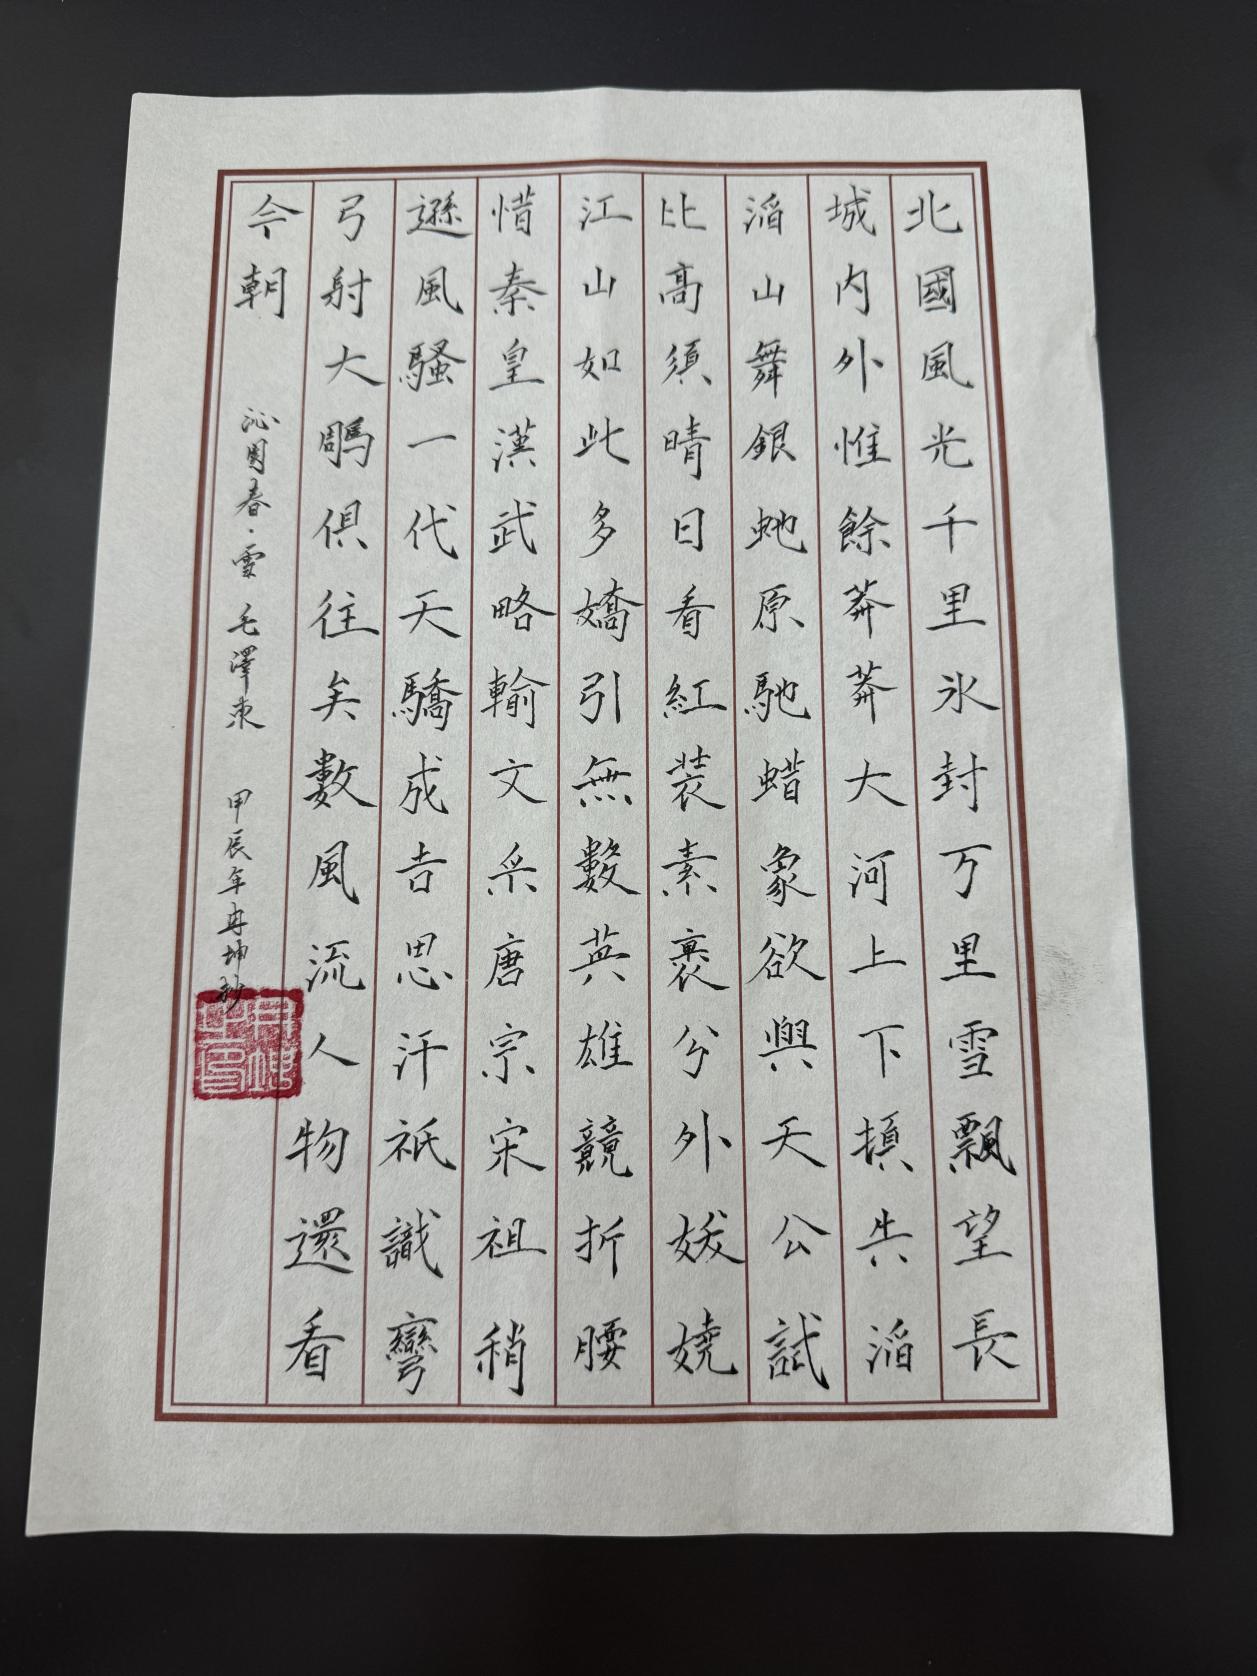 北國風光千里氷封万里雪飄望長
城内外惟餘莽莽大河上下頓失滔
滔山舞銀虵原馳蜡象欲與天公試
比高須晴日看紅裝素裹分外妖嬈
江山如此多嬌引無數英雄競折腰
惜秦皇漢武略輸文采唐宗宋祖稍
遜風騷一代天驕成吉思汗祇識彎
弓射大鵰俱往矣數風流人物還看
今朝
沁園春·雪 毛澤東 甲辰年冉坤抄
冉坤之印